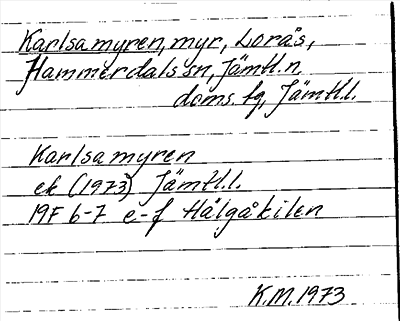 Karlsamyren, myr, Lorås,
Hammerdals sn, Jämtl. n.
doms. fg, Jämtl.l.
Karlsamyren
ek (1973) Jämtl.l.
19F 6-7 e-f Hålgåkilen
K.M. 1973